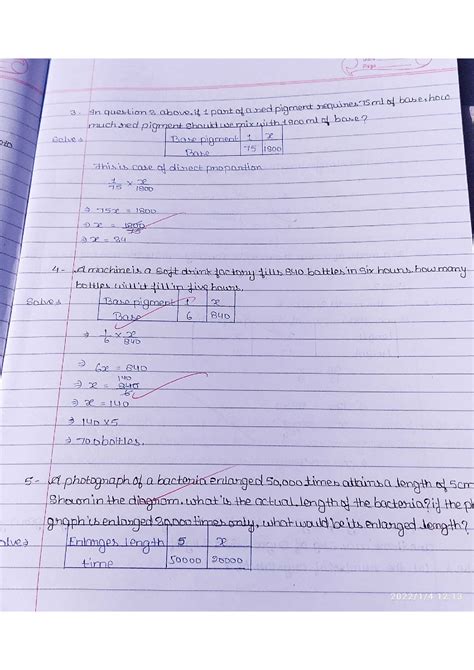 3. In question 2 above, if 1 part of a red pigment requires 75ml of base, how
much red pigment should we mix with 1800 ml of base?
Solve
Base pigment 1 x
Base 75 1800
This is case of direct proportion
1/75 x x/1800
⇒ 75x = 1800
⇒ x = 1800/75
⇒ x = 24
4- A machine is a soft drink factory fills 840 bottles in six hours. how many
bottles will it fill in five hours.
Solve
Base pigment 1 x
Base 6 840
⇒ 1/6 x x/840
⇒ 6x = 840
140
⇒ x = 840/6
⇒ x = 140
⇒ 140 x 5
⇒ 700 bottles.
5- A photograph of a bacteria enlarged 50,000 times attains a length of 5cm
Shown in the diagram. what is the actual length of the bacteria? if the ph
graph is enlarged 20,000 times only, what would be its enlarged length?
olve
Enlarges length 5 x
time 50000 20000
2022/1/4 12:13